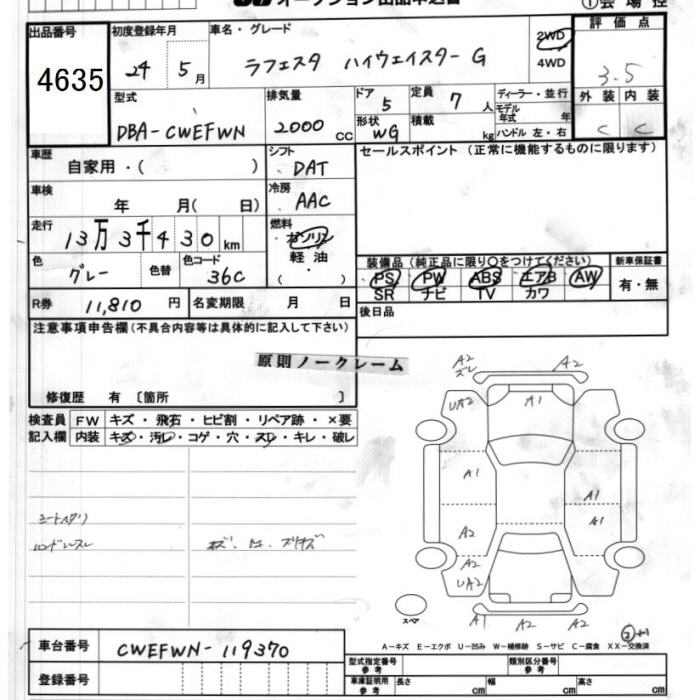 オークション出品申込書
①会場控
出品番号
4635
初度登録年月
24 5月
車名・グレード
ラフェスタ ハイウェイスター G
2WD
4WD
評価点
3.5
外装 内装
C C
型式
DBA-CWEFWN
排気量
2000 cc
ドア
5
形状
WG
定員
7 人
積載
kg
ディーラー・並行
モデル年式 年
ハンドル 左・右
車歴
自家用・( )
シフト
DAT
セールスポイント (正常に機能するものに限ります)
車検
年 月( 日)
冷房
AAC
走行
13万3千430km
燃料
ガソリン
軽油
( )
色
グレー
色替
色コード
36C
装備品 (純正品に限り〇をつけてください)
新車保証書
PS PW ABS エアB AW
SR ナビ TV カワ
有・無
R券 11,810 円
名変期限 月 日
後日品
注意事項申告欄 (不具合内容等は具体的に記入して下さい)
原則ノークレーム
修復歴 有 [箇所 ]
検査員記入欄
FW キズ・飛石・ヒビ割・リペア跡・×要
内装 キズ・汚レ・コゲ・穴・スレ・キレ・破レ
シートスタリ
ハンドルスレ
A2
ズレ
A2
UA2
A1
A1
A1
A1
A2
A2
UA2
A1
A2
A2
スペア
A-キズ E-エクボ U-凹み W-補修跡 S-サビ C-腐食 XX-交換済
車台番号
CWEFWN-119370
登録番号
型式指定番号 参考
類別区分番号 参考
車庫証明用 参考
長さ cm
幅 cm
高さ cm